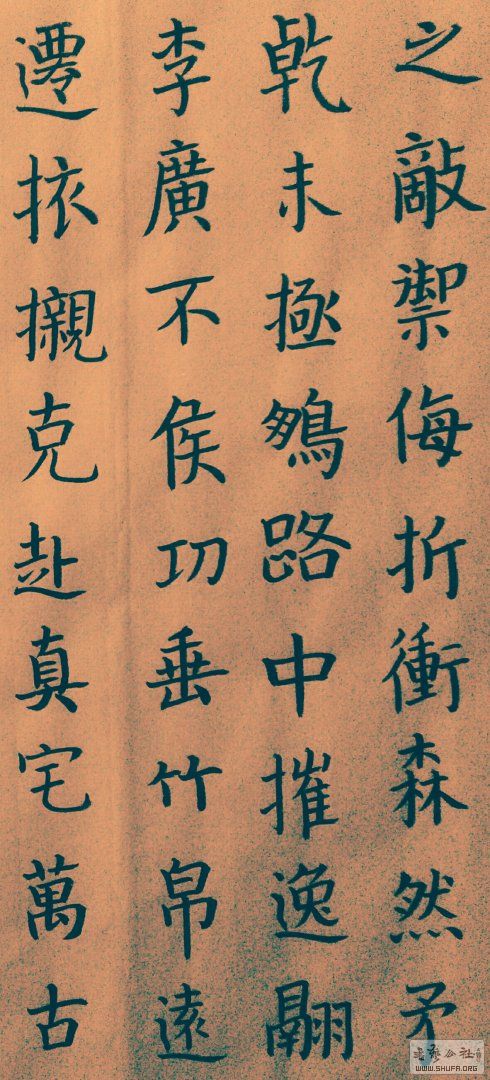 之敵禦侮折衝森然矛
乾未極鵷路中摧逸翮
李廣不侯功垂竹帛遠
遷旅櫬克赴真宅萬古
书艺公社
WWW.SHUFA.ORG